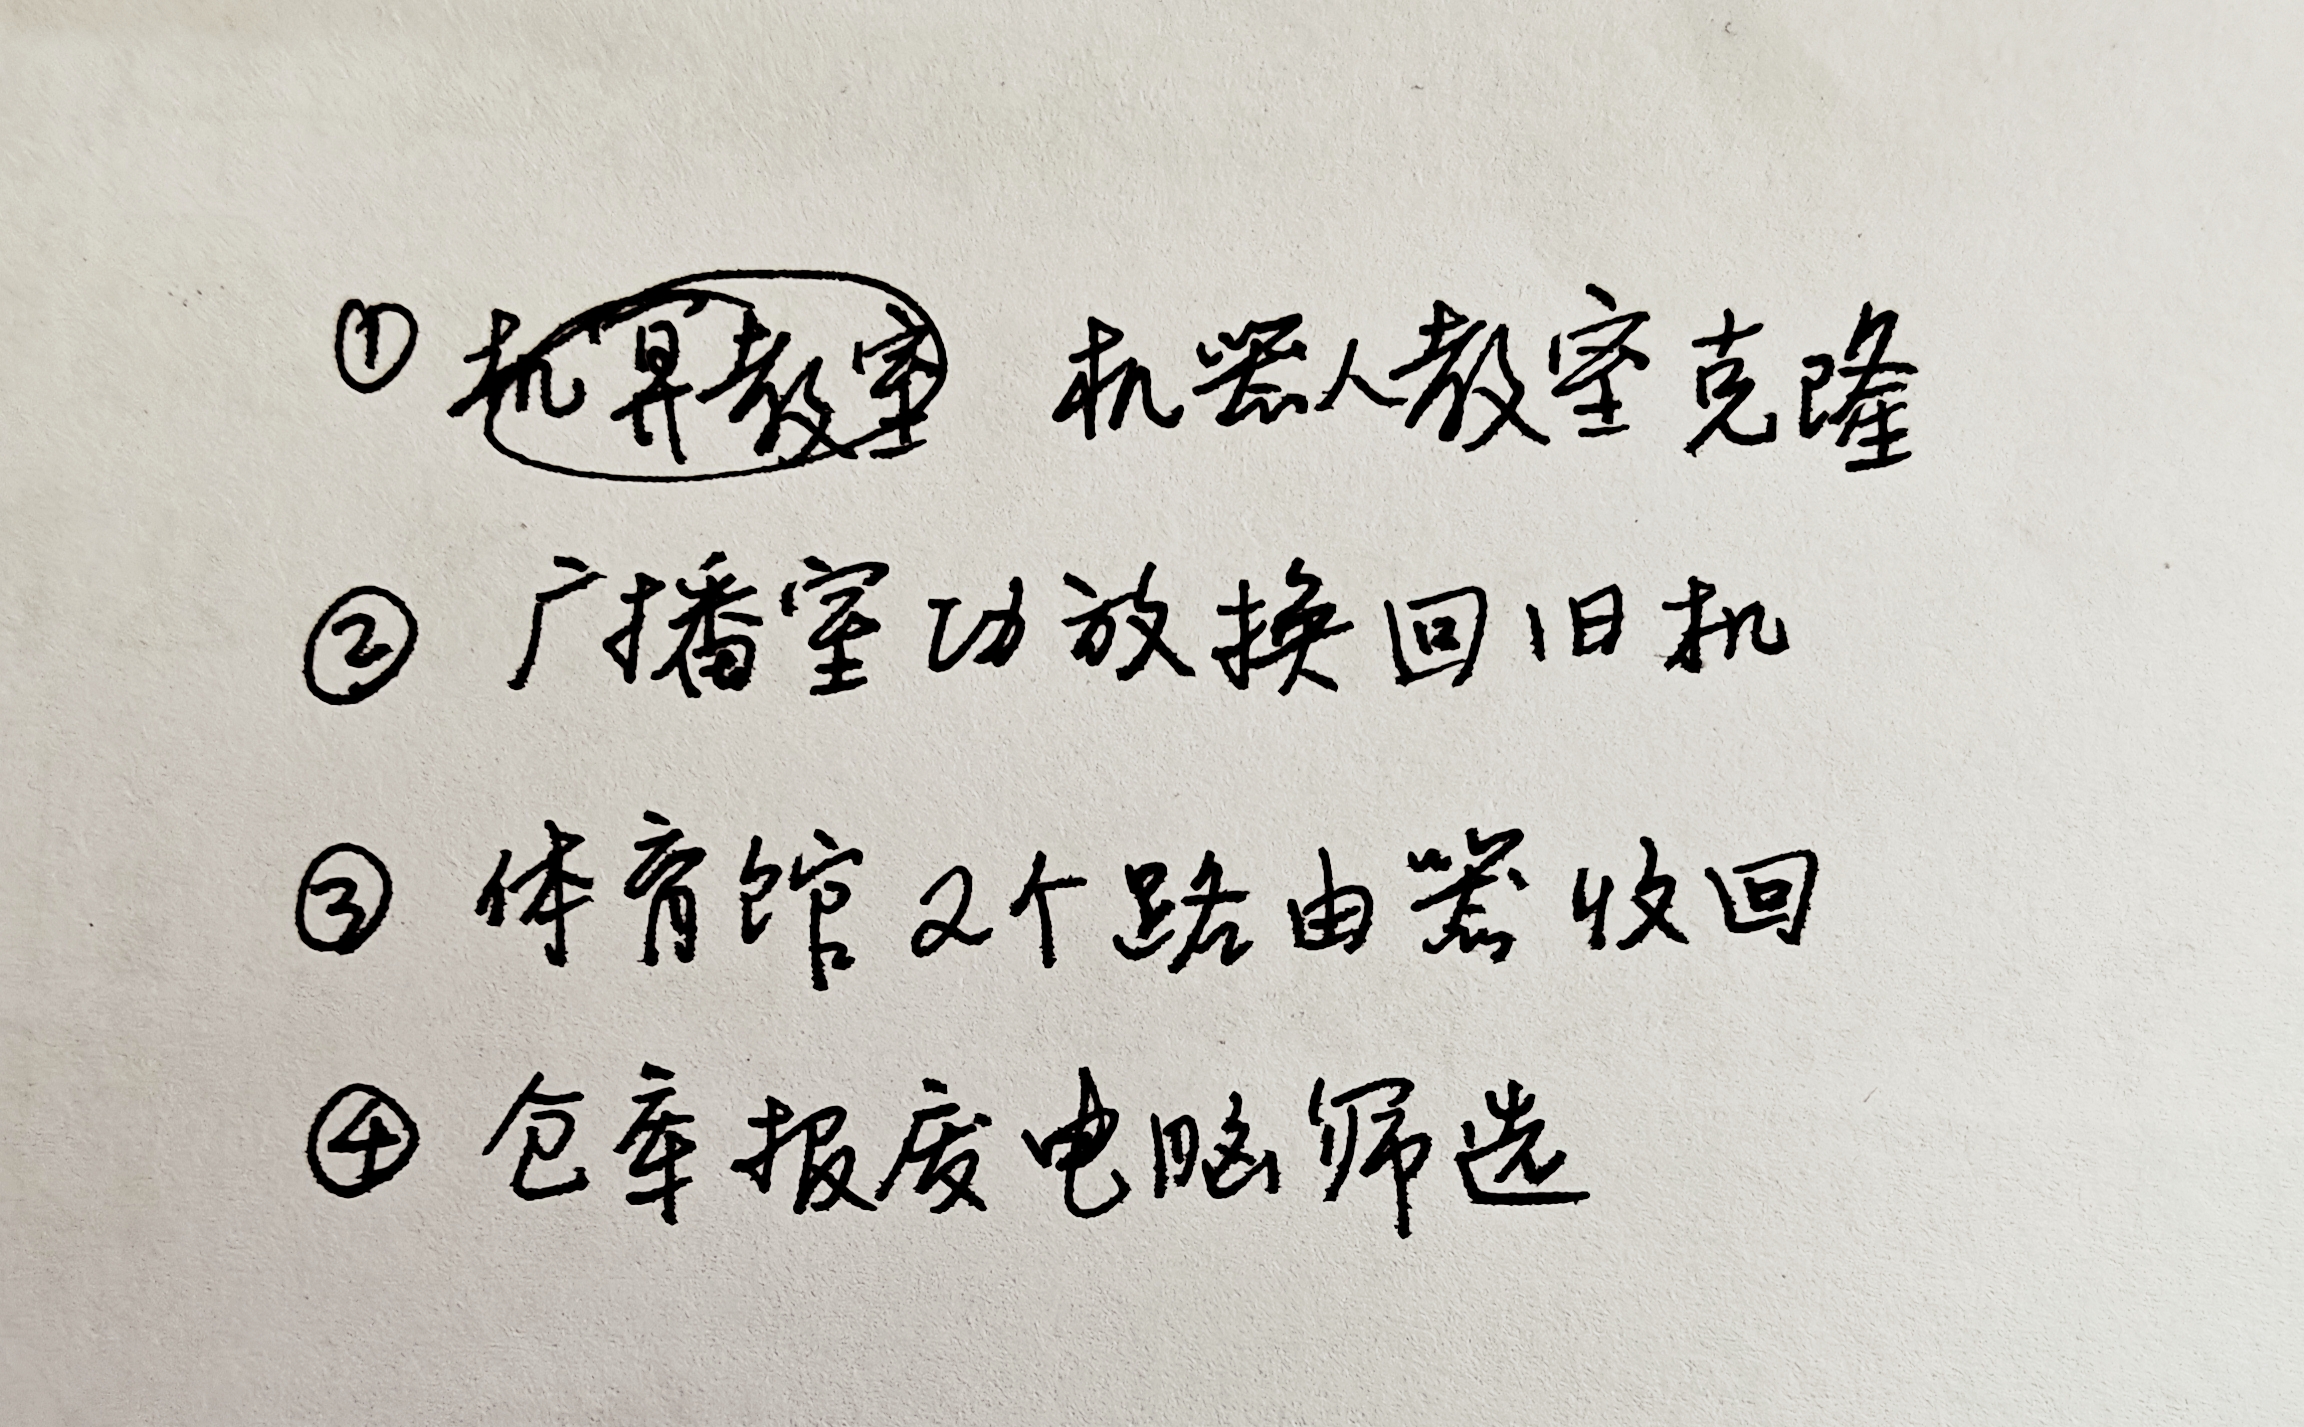 ① 机异教室 机器人教室克隆
② 广播室功放换回旧机
③ 体育馆2个路由器收回
④ 仓库报废电脑筛选